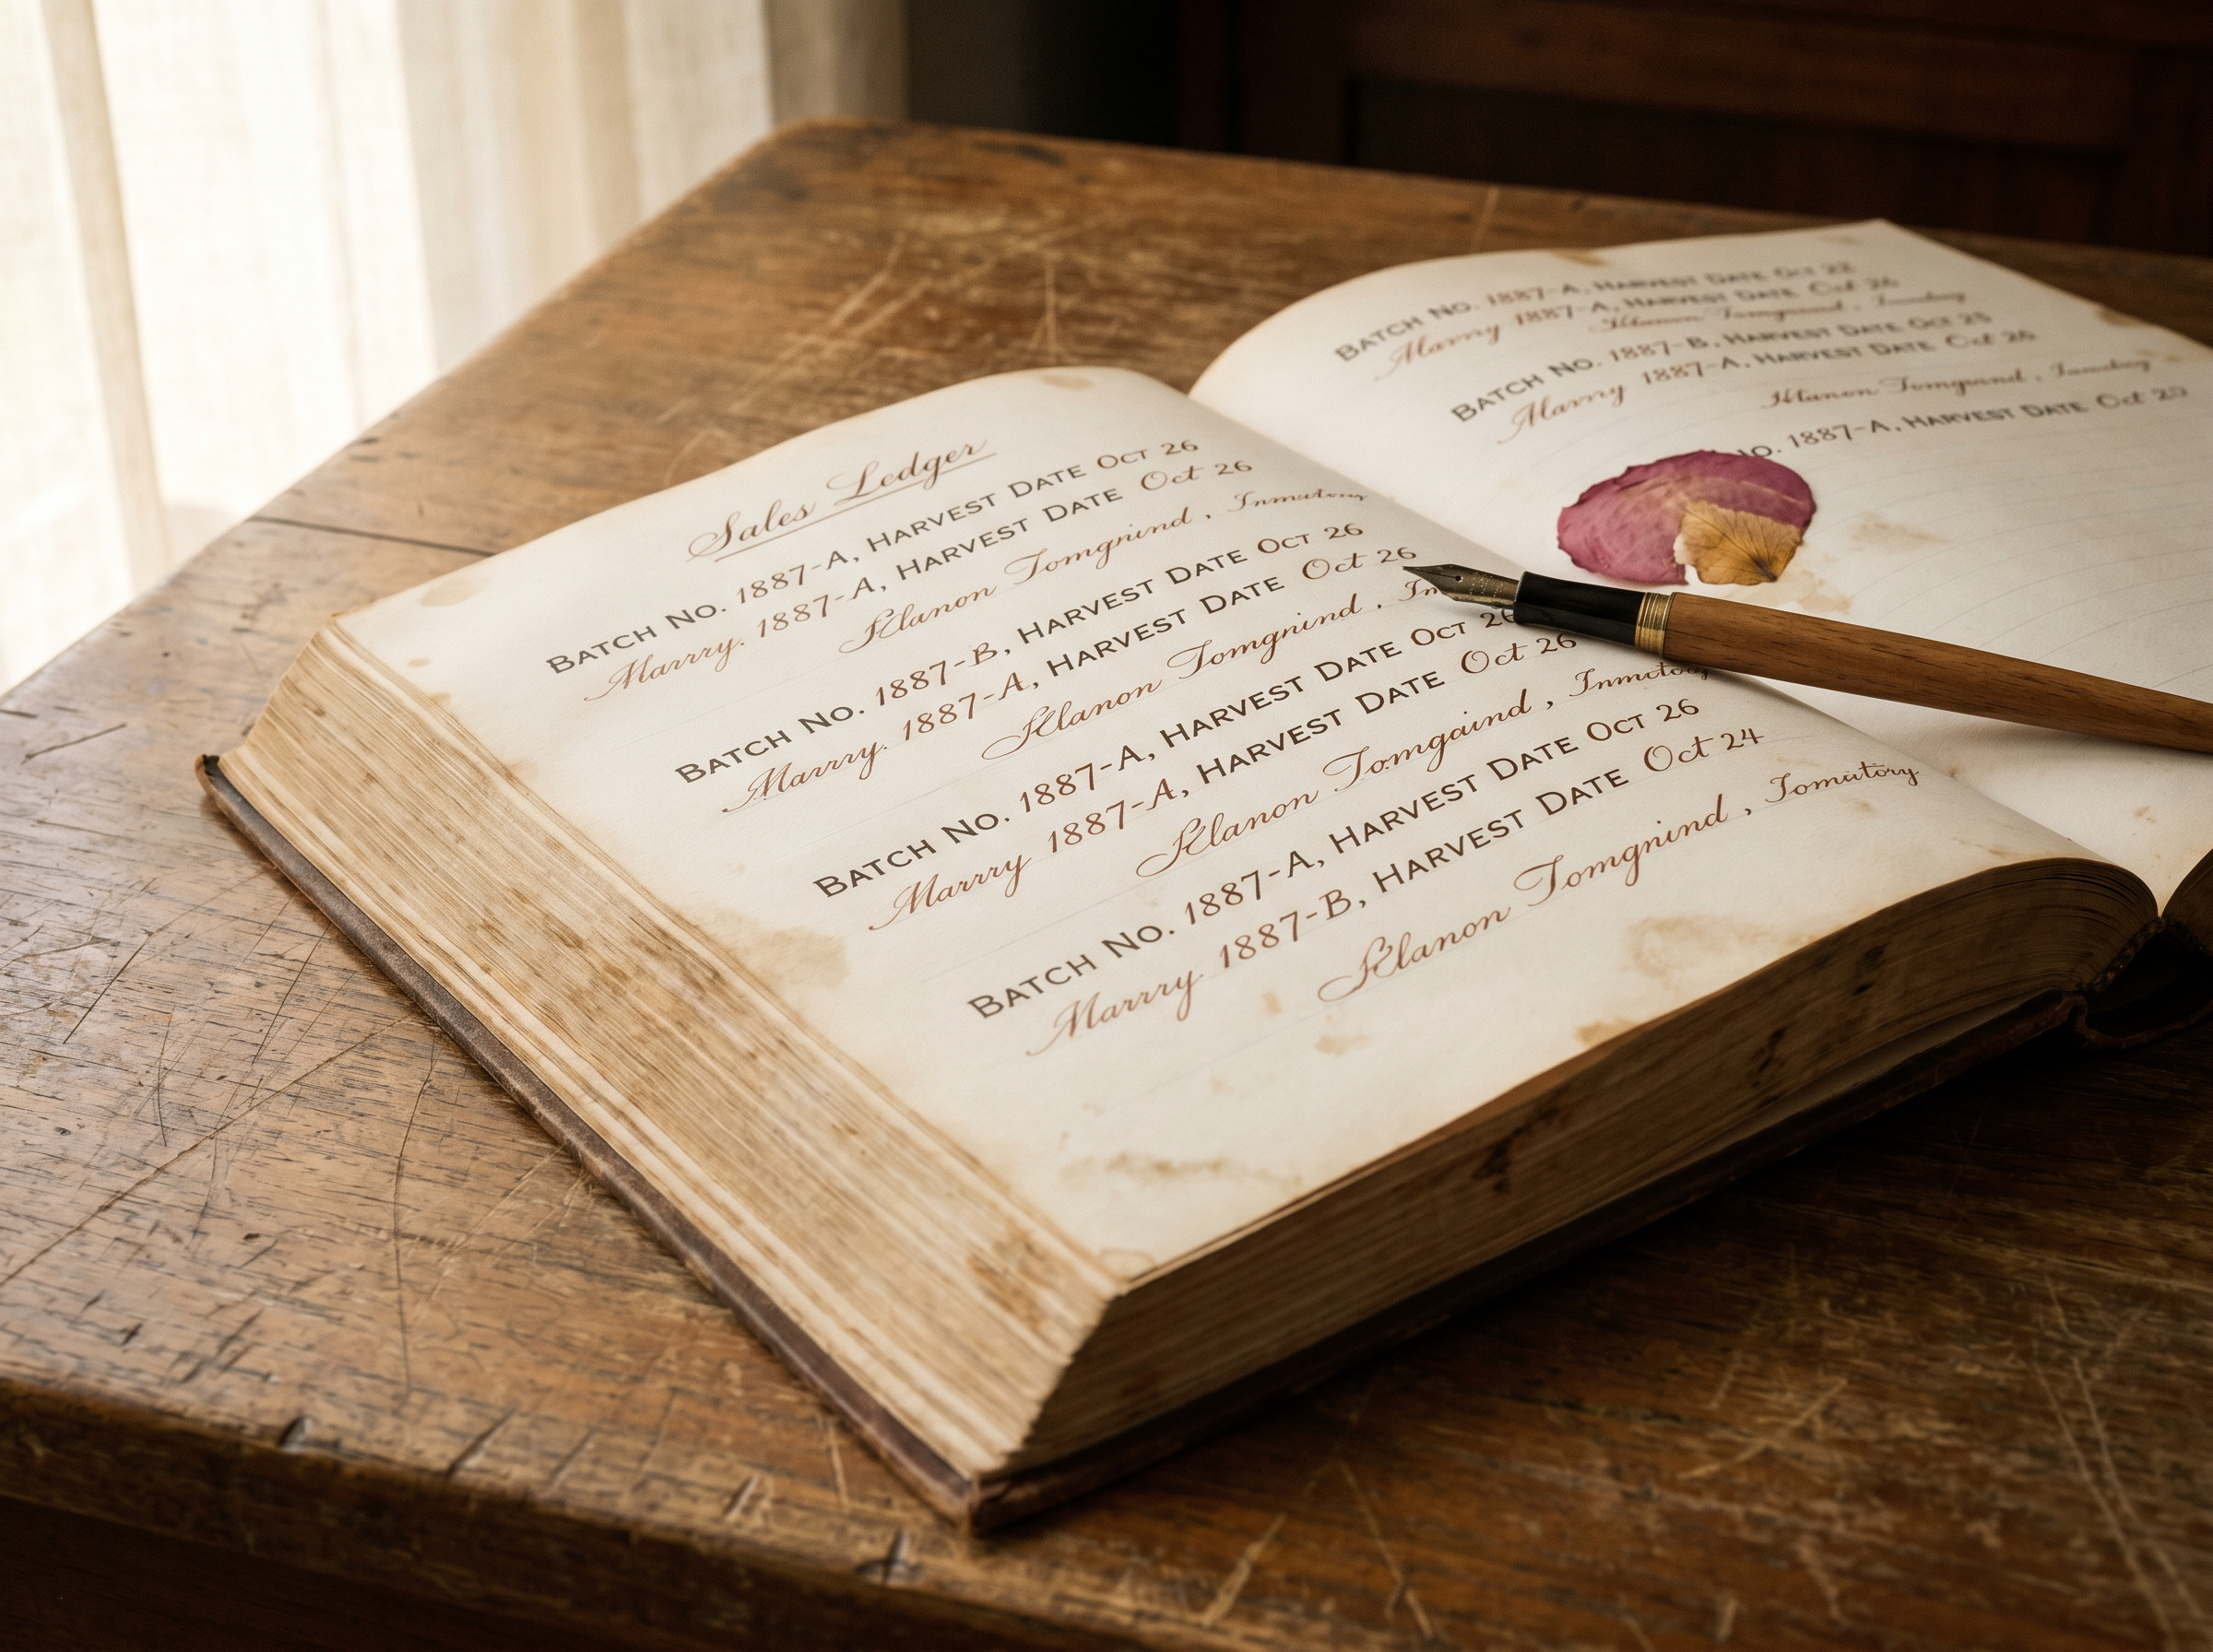 Sales Ledger
BATCH NO. 1887-A, HARVEST DATE OCT 26
Marrry. 1887-A, HARVEST DATE Oct 26
Klanon Tomgnind,
BATCH NO. 1887-B, HARVEST DATE OCT 26
Marrry. 1887-A, HARVEST DATE Oct 26
Klanon Tomgnind,
BATCH NO. 1887-A, HARVEST DATE OCT 26
Marrry 1887-A, HARVEST DATE Oct 26
Klanon Tomgaind,
BATCH NO. 1887-A, HARVEST DATE OCT 26
Marrry 1887-B, HARVEST DATE Oct 24
Klanon Tomgnind, Tomutory
BATCH NO. 1887-A, HARVEST DATE Oct
1887-A, HARVEST DATE Oct 26
BATCH NO. 1887-B, HARVEST DATE Oct
1887-A, HARVEST DATE Oct 26
NO. 1887-A, HARVEST DATE Oct